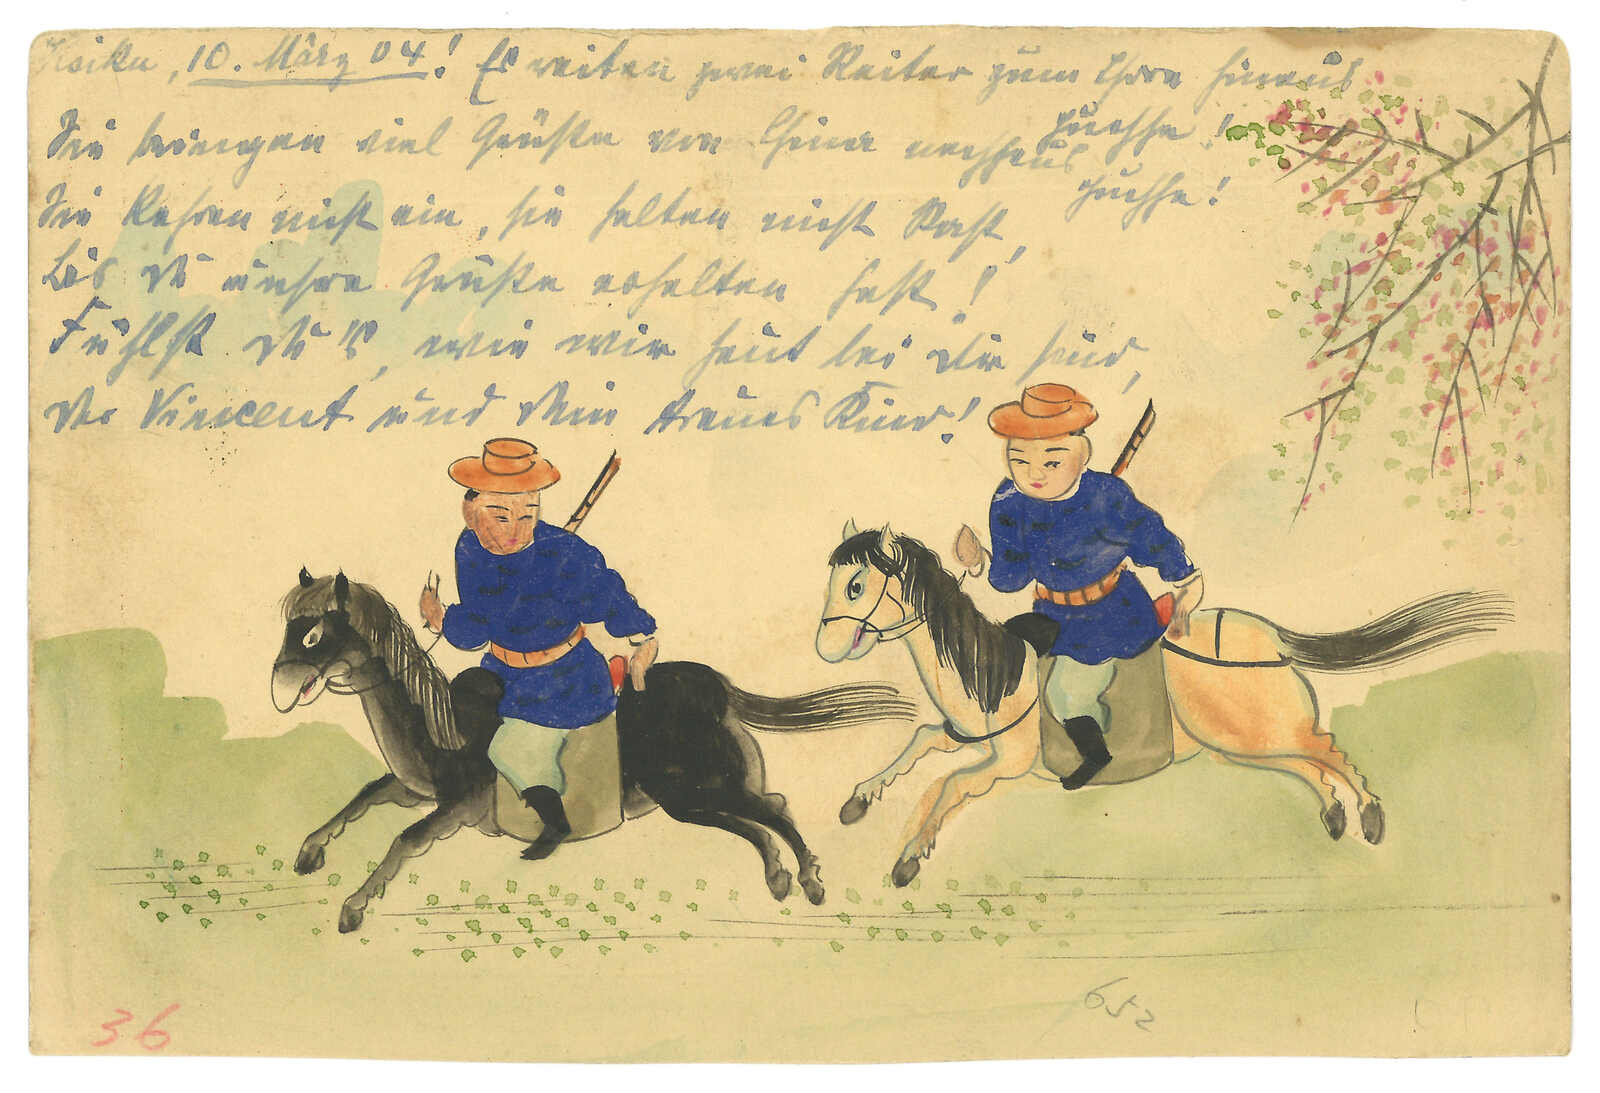 Hsiku, 10. März 04! Es reiten zwei Reiter zum Thore hinaus
juchhe!
Sie bringen viel Grüße von China nachhaus
juchhe!
Sie kehren nicht ein, sie halten nicht Rast,
Bis Du unsre Grüße erhalten hast!
Fühlst Du's, wie wir heut bei Dir sind,
Der Vincent und Dein treues Kind!
36
652